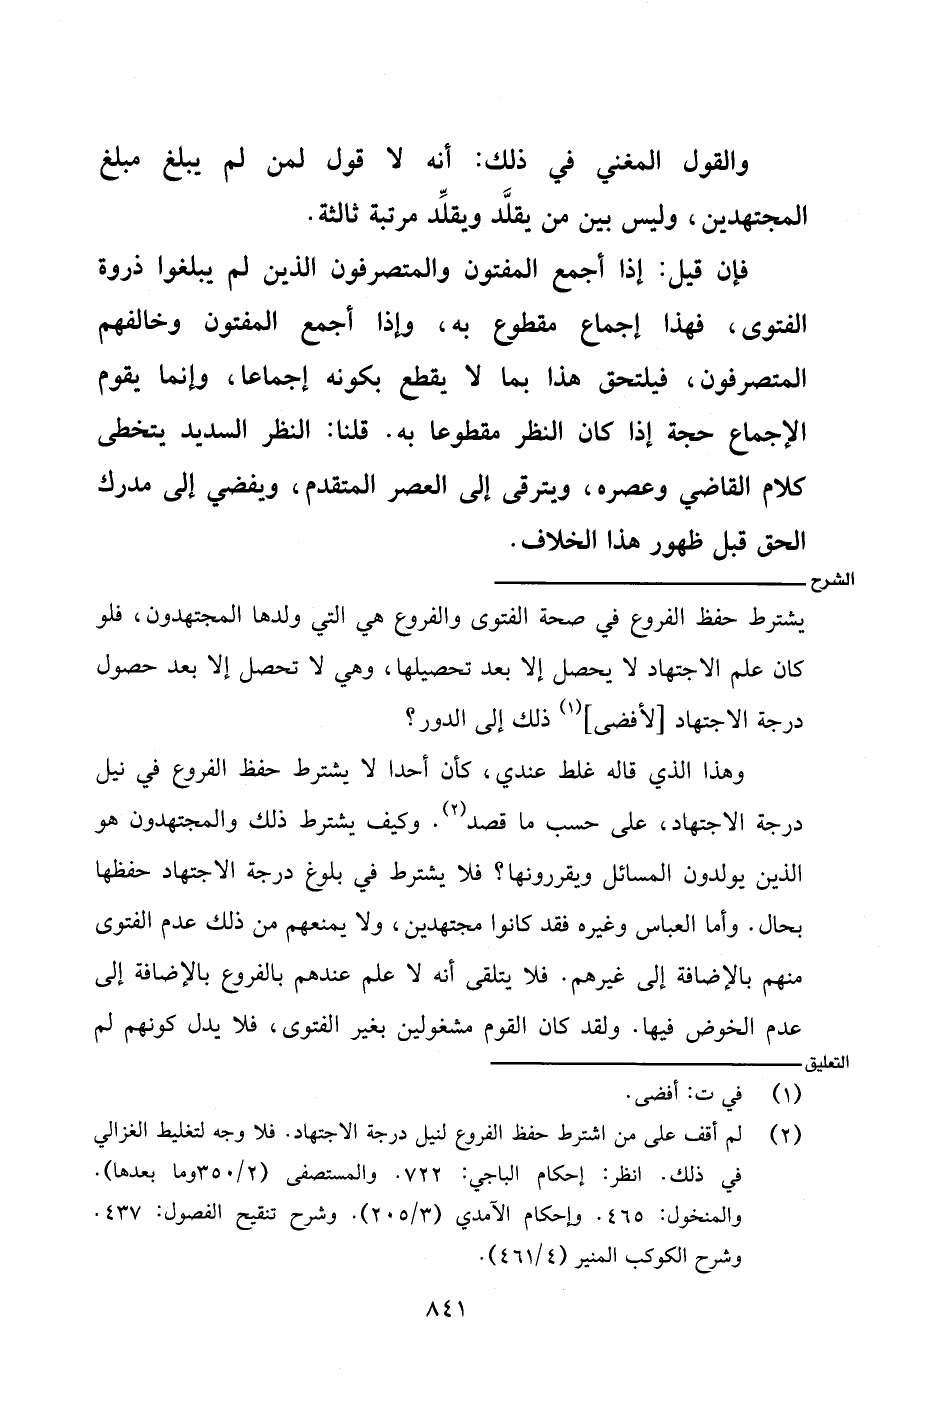 والقول المغني في ذلك: أنه لا قول لمن لم يبلغ مبلغ
المجتهدين، وليس بين من يقلَّد ويقلِّد مرتبة ثالثة.
فإن قيل: إذا أجمع المفتون والمتصرفون الذين لم يبلغوا ذروة
الفتوى، فهذا إجماع مقطوع به، وإذا أجمع المفتون وخالفهم
المتصرفون، فيلتحق هذا بما لا يقطع بكونه إجماعا، وإنما يقوم
الإجماع حجة إذا كان النظر مقطوعا به. قلنا: النظر السديد يتخطى
كلام القاضي وعصره، ويترقى إلى العصر المتقدم، ويفضي إلى مدرك
الحق قبل ظهور هذا الخلاف.
الشرح
يشترط حفظ الفروع في صحة الفتوى والفروع هي التي ولدها المجتهدون، فلو
كان علم الاجتهاد لا يحصل إلا بعد تحصيلها، وهي لا تحصل إلا بعد حصول
درجة الاجتهاد [لأفضى](١) ذلك إلى الدور؟
وهذا الذي قاله غلط عندي، كأن أحدا لا يشترط حفظ الفروع في نيل
درجة الاجتهاد، على حسب ما قصد(٢). وكيف يشترط ذلك والمجتهدون هو
الذين يولدون المسائل ويقررونها؟ فلا يشترط في بلوغ درجة الاجتهاد حفظها
بحال. وأما العباس وغيره فقد كانوا مجتهدين، ولا يمنعهم من ذلك عدم الفتوى
منهم بالإضافة إلى غيرهم. فلا يتلقى أنه لا علم عندهم بالفروع بالإضافة إلى
عدم الخوض فيها. ولقد كان القوم مشغولين بغير الفتوى، فلا يدل كونهم لم
التعليق
(١) في ت: أفضى.
(٢) لم أقف على من اشترط حفظ الفروع لنيل درجة الاجتهاد. فلا وجه لتغليط الغزالي
في ذلك. انظر: إحكام الباجي: ٧٢٢. والمستصفى (٣٥٠/٢وما بعدها).
والمنخول: ٤٦٥. وإحكام الآمدي (٢٠٥/٣). وشرح تنقيح الفصول: ٤٣٧.
وشرح الكوكب المنير (٤٦١/٤).
٨٤١